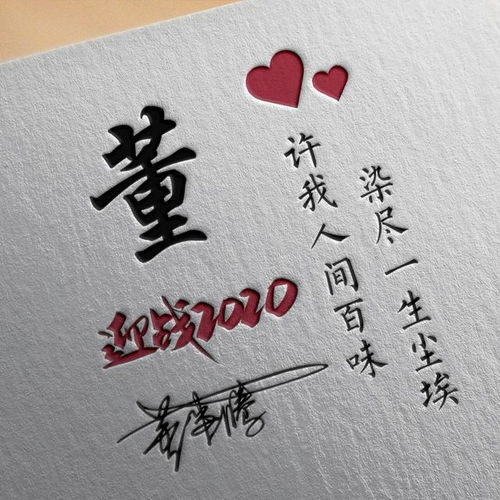 董
许我人间百味
染尽一生尘埃
迎战2020